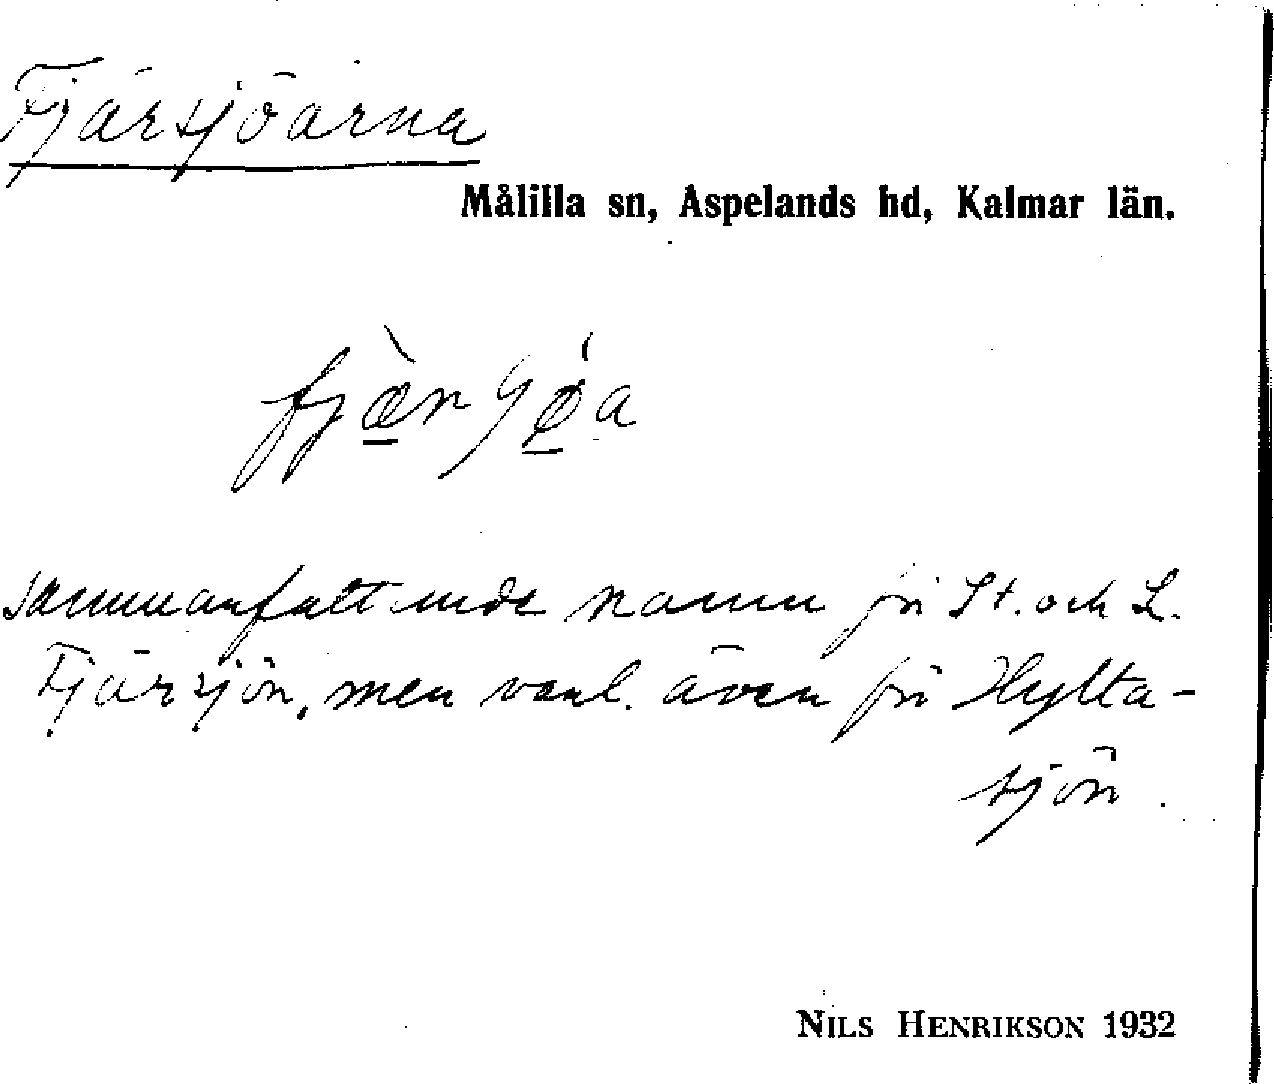 Fjärsjöarna
Målilla sn, Aspelands hd, Kalmar län.
sammanfattande namn för St. och L.
Fjärsjön, men vanl. även för Hylta-
sjön.
NILS HENRIKSON 1932